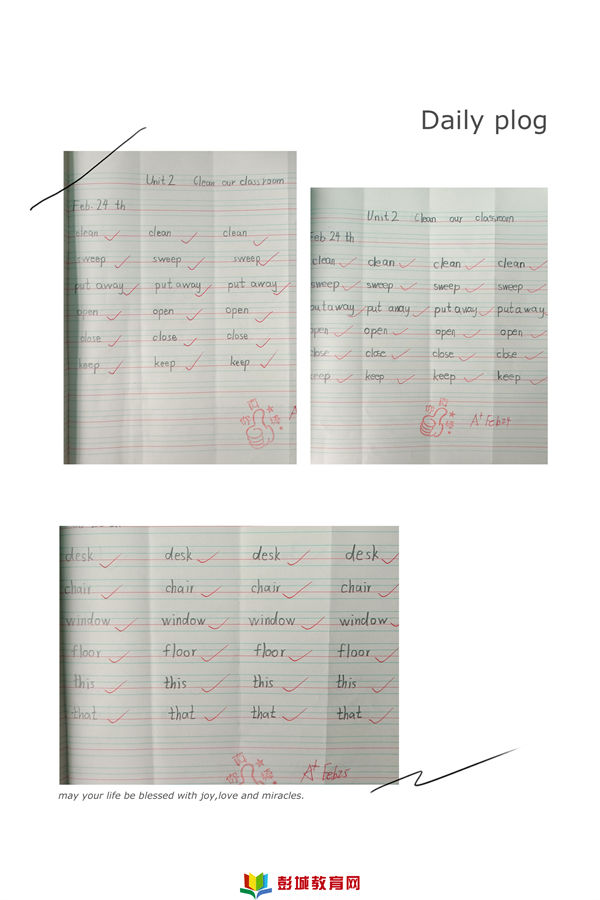 Daily plog
Unit 2 Clean our classroom
Feb. 24 th
clean clean clean
sweep sweep sweep
put away put away put away
open open open
close close close
keep keep keep
Unit 2 Clean our classroom
Feb 24 th
clean clean clean clean
sweep sweep sweep sweep
put away put away put away put away
open open open open
close close close close
keep keep keep keep
A+ Feb24
desk desk desk desk
chair chair chair chair
window window window window
floor floor floor floor
this this this this
that that that that
A+ Feb25
may your life be blessed with joy,love and miracles.
彭城教育网